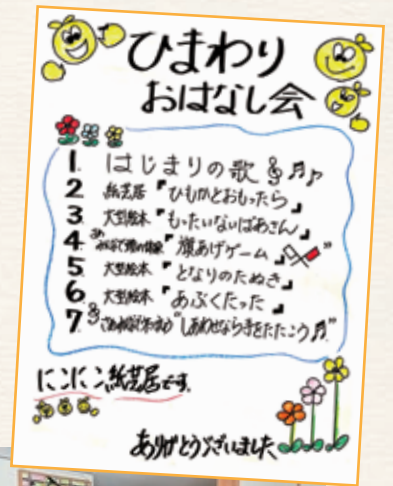 ひまわり
おはなし会
1. はじまりの歌
2 紙芝居『ひもかとおもったら』
3 大型絵本『もったいないばあさん』
4 『旗あげゲーム』
5 大型絵本『となりのたぬき』
6 大型絵本『あぶくたった』
7 "しあわせなら手をたたこう"
にこにこ紙芝居です。
ありがとうございました